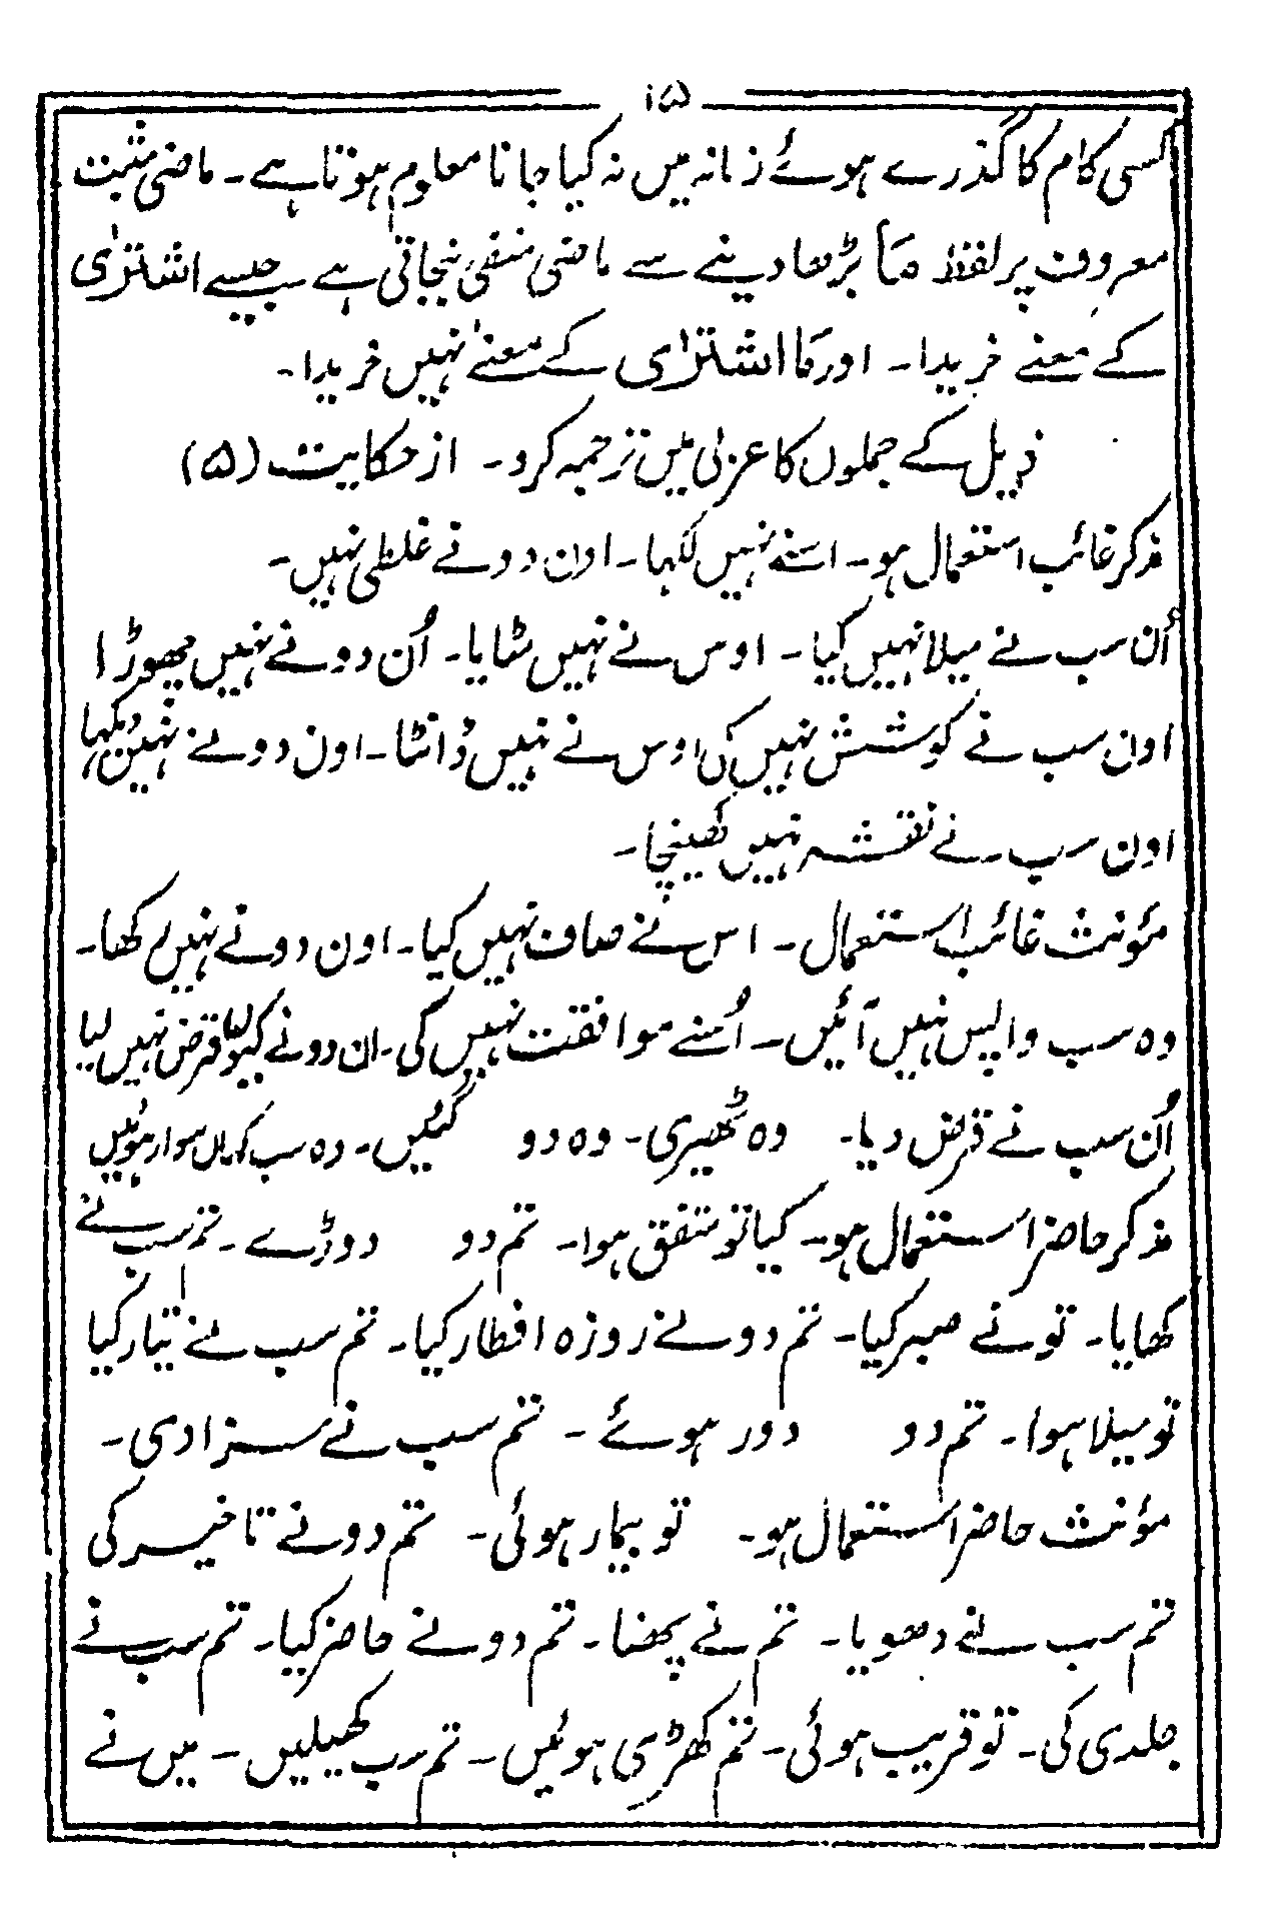 ۱۵
کسی کام کا گذرے ہوئے زمانہ میں نہ کیا جانا معلوم ہوتا ہے۔ ماضی مثبت
معروف پر لفظ مَا بڑھا دینے سے ماضی منفی بنجاتی ہے جیسے اشترٰی
کے معنے خریدا۔ اور مَا اشترٰی کے معنے نہیں خریدا۔
ذیل کے جملوں کا عربی میں ترجمہ کرو۔ از حکایت (۵)
مذکر غائب استعمال ہو۔ اسنے نہیں لکہا۔ اون دو نے غلطی نہیں۔
اُن سب نے میلا نہیں کیا۔ اوس نے نہیں ہٹایا۔ اُن دو نے نہیں چھوڑا
اون سب نے کوشش نہیں کی اوس نے نہیں ڈانٹا۔ اون دو نے نہیں دیکہا
اون سب نے نقشہ نہیں کھینچا۔
مؤنث غائب استعمال۔ اس نے صاف نہیں کیا۔ اون دو نے نہیں رکھا۔
وہ سب واپس نہیں آئیں۔ اُسنے موافقت نہیں کی۔ ان دو نے کیوں قرض نہیں لیا
اُن سب نے قرض دیا۔ وہ ٹھیری۔ وہ دو گئیں۔ وہ سب سوار ہوئیں
مذکر حاضر استعمال ہو۔ کیا تو متفق ہوا۔ تم دو دوڑے۔ تم سب نے
کھایا۔ تو نے صبر کیا۔ تم دو نے روزہ افطار کیا۔ تم سب نے تیار کیا
تو میلا ہوا۔ تم دو دور ہوئے۔ تم سب نے سزا دی۔
مؤنث حاضر استعمال ہو۔ تو بیمار ہوئی۔ تم دو نے تاخیر کی
تم سب نے دھویا۔ تم نے پہنا۔ تم دو نے حاضر کیا۔ تم سب نے
جلدی کی۔ تو قریب ہوئی۔ تم کھڑی ہوئیں۔ تم سب کھیلیں۔ میں نے